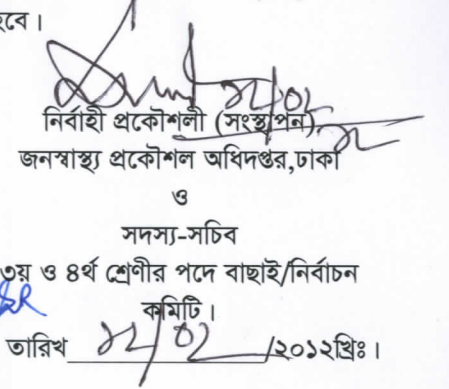 হবে।
নির্বাহী প্রকৌশলী (সংস্থাপন)
জনস্বাস্থ্য প্রকৌশল অধিদপ্তর,ঢাকা
ও
সদস্য-সচিব
৩য় ও ৪র্থ শ্রেণীর পদে বাছাই/নির্বাচন
কমিটি।
তারিখ /২০১২খ্রিঃ।